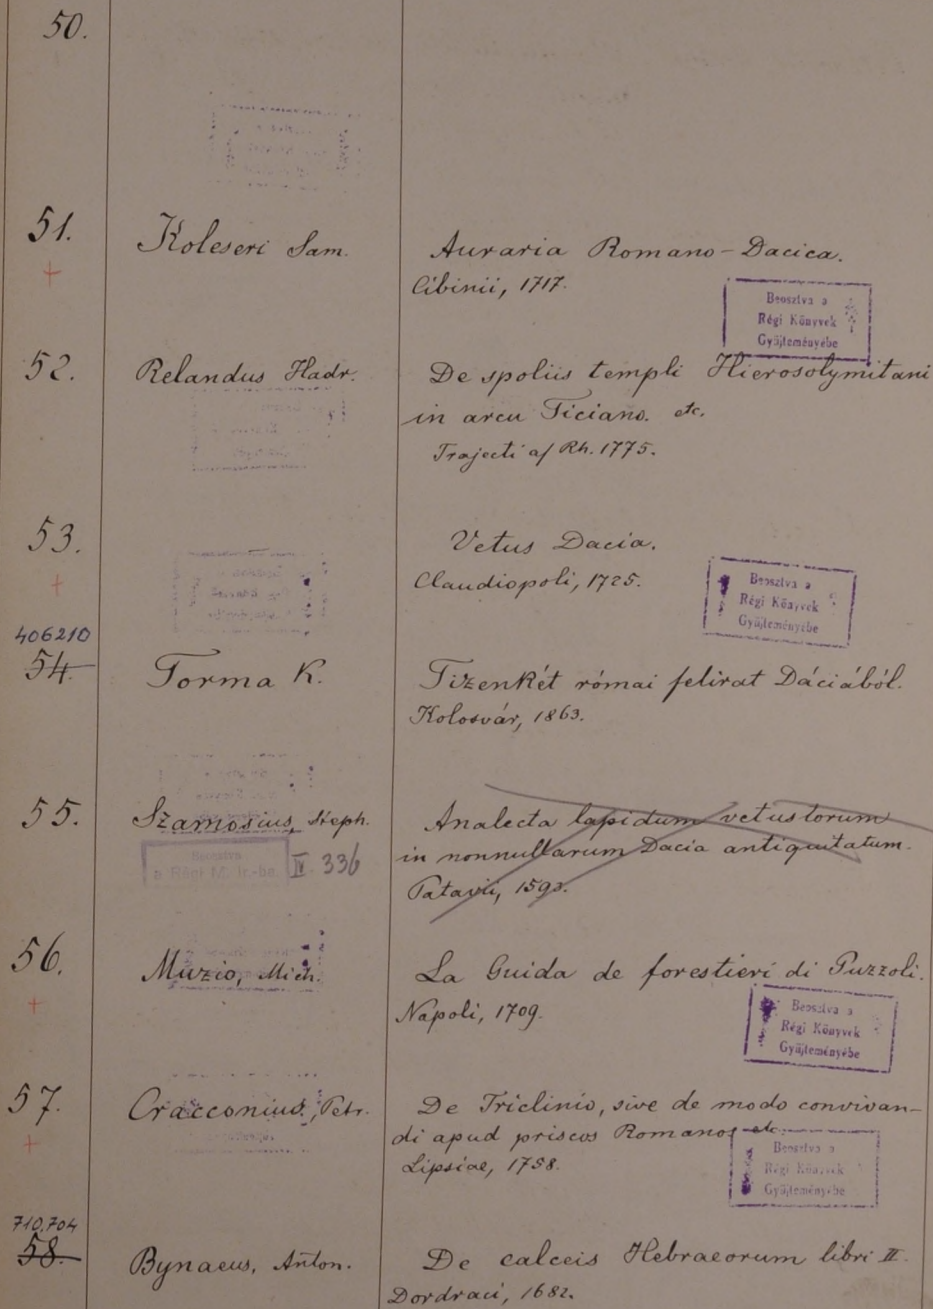 50.
51.
Koleseri Sam.
Auraria Romano-Dacica.
Cibinii, 1717.
Beosztva a
Régi Könyvek
Gyűjteményébe
52.
Relandus Hadr.
De spoliis templi Hierosolymitani
in arcu Ticiano. etc.
Trajecti a/ Rh. 1775.
53.
Vetus Dacia.
Claudiopoli, 1725.
Beosztva a
Régi Könyvek
Gyűjteményébe
406210
54.
Torma K.
Tizenkét római felirat Dáciából.
Kolosvár, 1863.
55.
Szamosius, Steph.
Analecta lapidum vetustorum
in nonnullarum Dacia antiquitatum.
Patavii,
Beosztva
a Régi M. K.-ba. IV 336
56.
Muzio, Mich.
La Guida de forestieri di Puzzoli.
Napoli, 1709.
Beosztva a
Régi Könyvek
Gyűjteményébe
57.
Cracconius, Petr.
De Triclinio, sive de modo convivan-
di apud priscos Romanos etc.
Lipsiae, 1758.
Beosztva a
Régi Könyvek
Gyűjteményébe
710.704
58.
Bynaeus, Anton.
De calceis Hebraeorum libri II.
Dordraci, 1682.